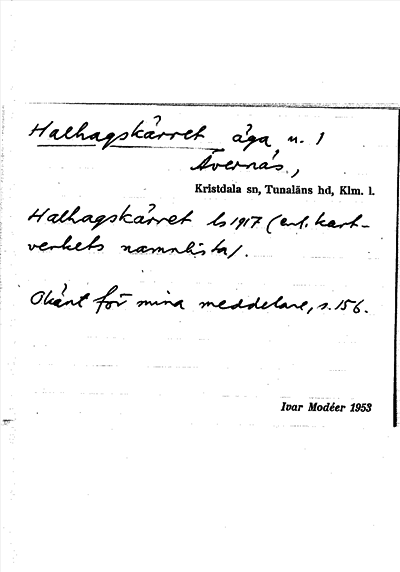 Halhagskärret äga n. 1
Övernäs,
Kristdala sn, Tunaläns hd, Klm. l.
Halhagskärret ls 1917 (enl. kart-
verkets namnlista).
Okänt för mina meddelare, s. 156.
Ivar Modéer 1953